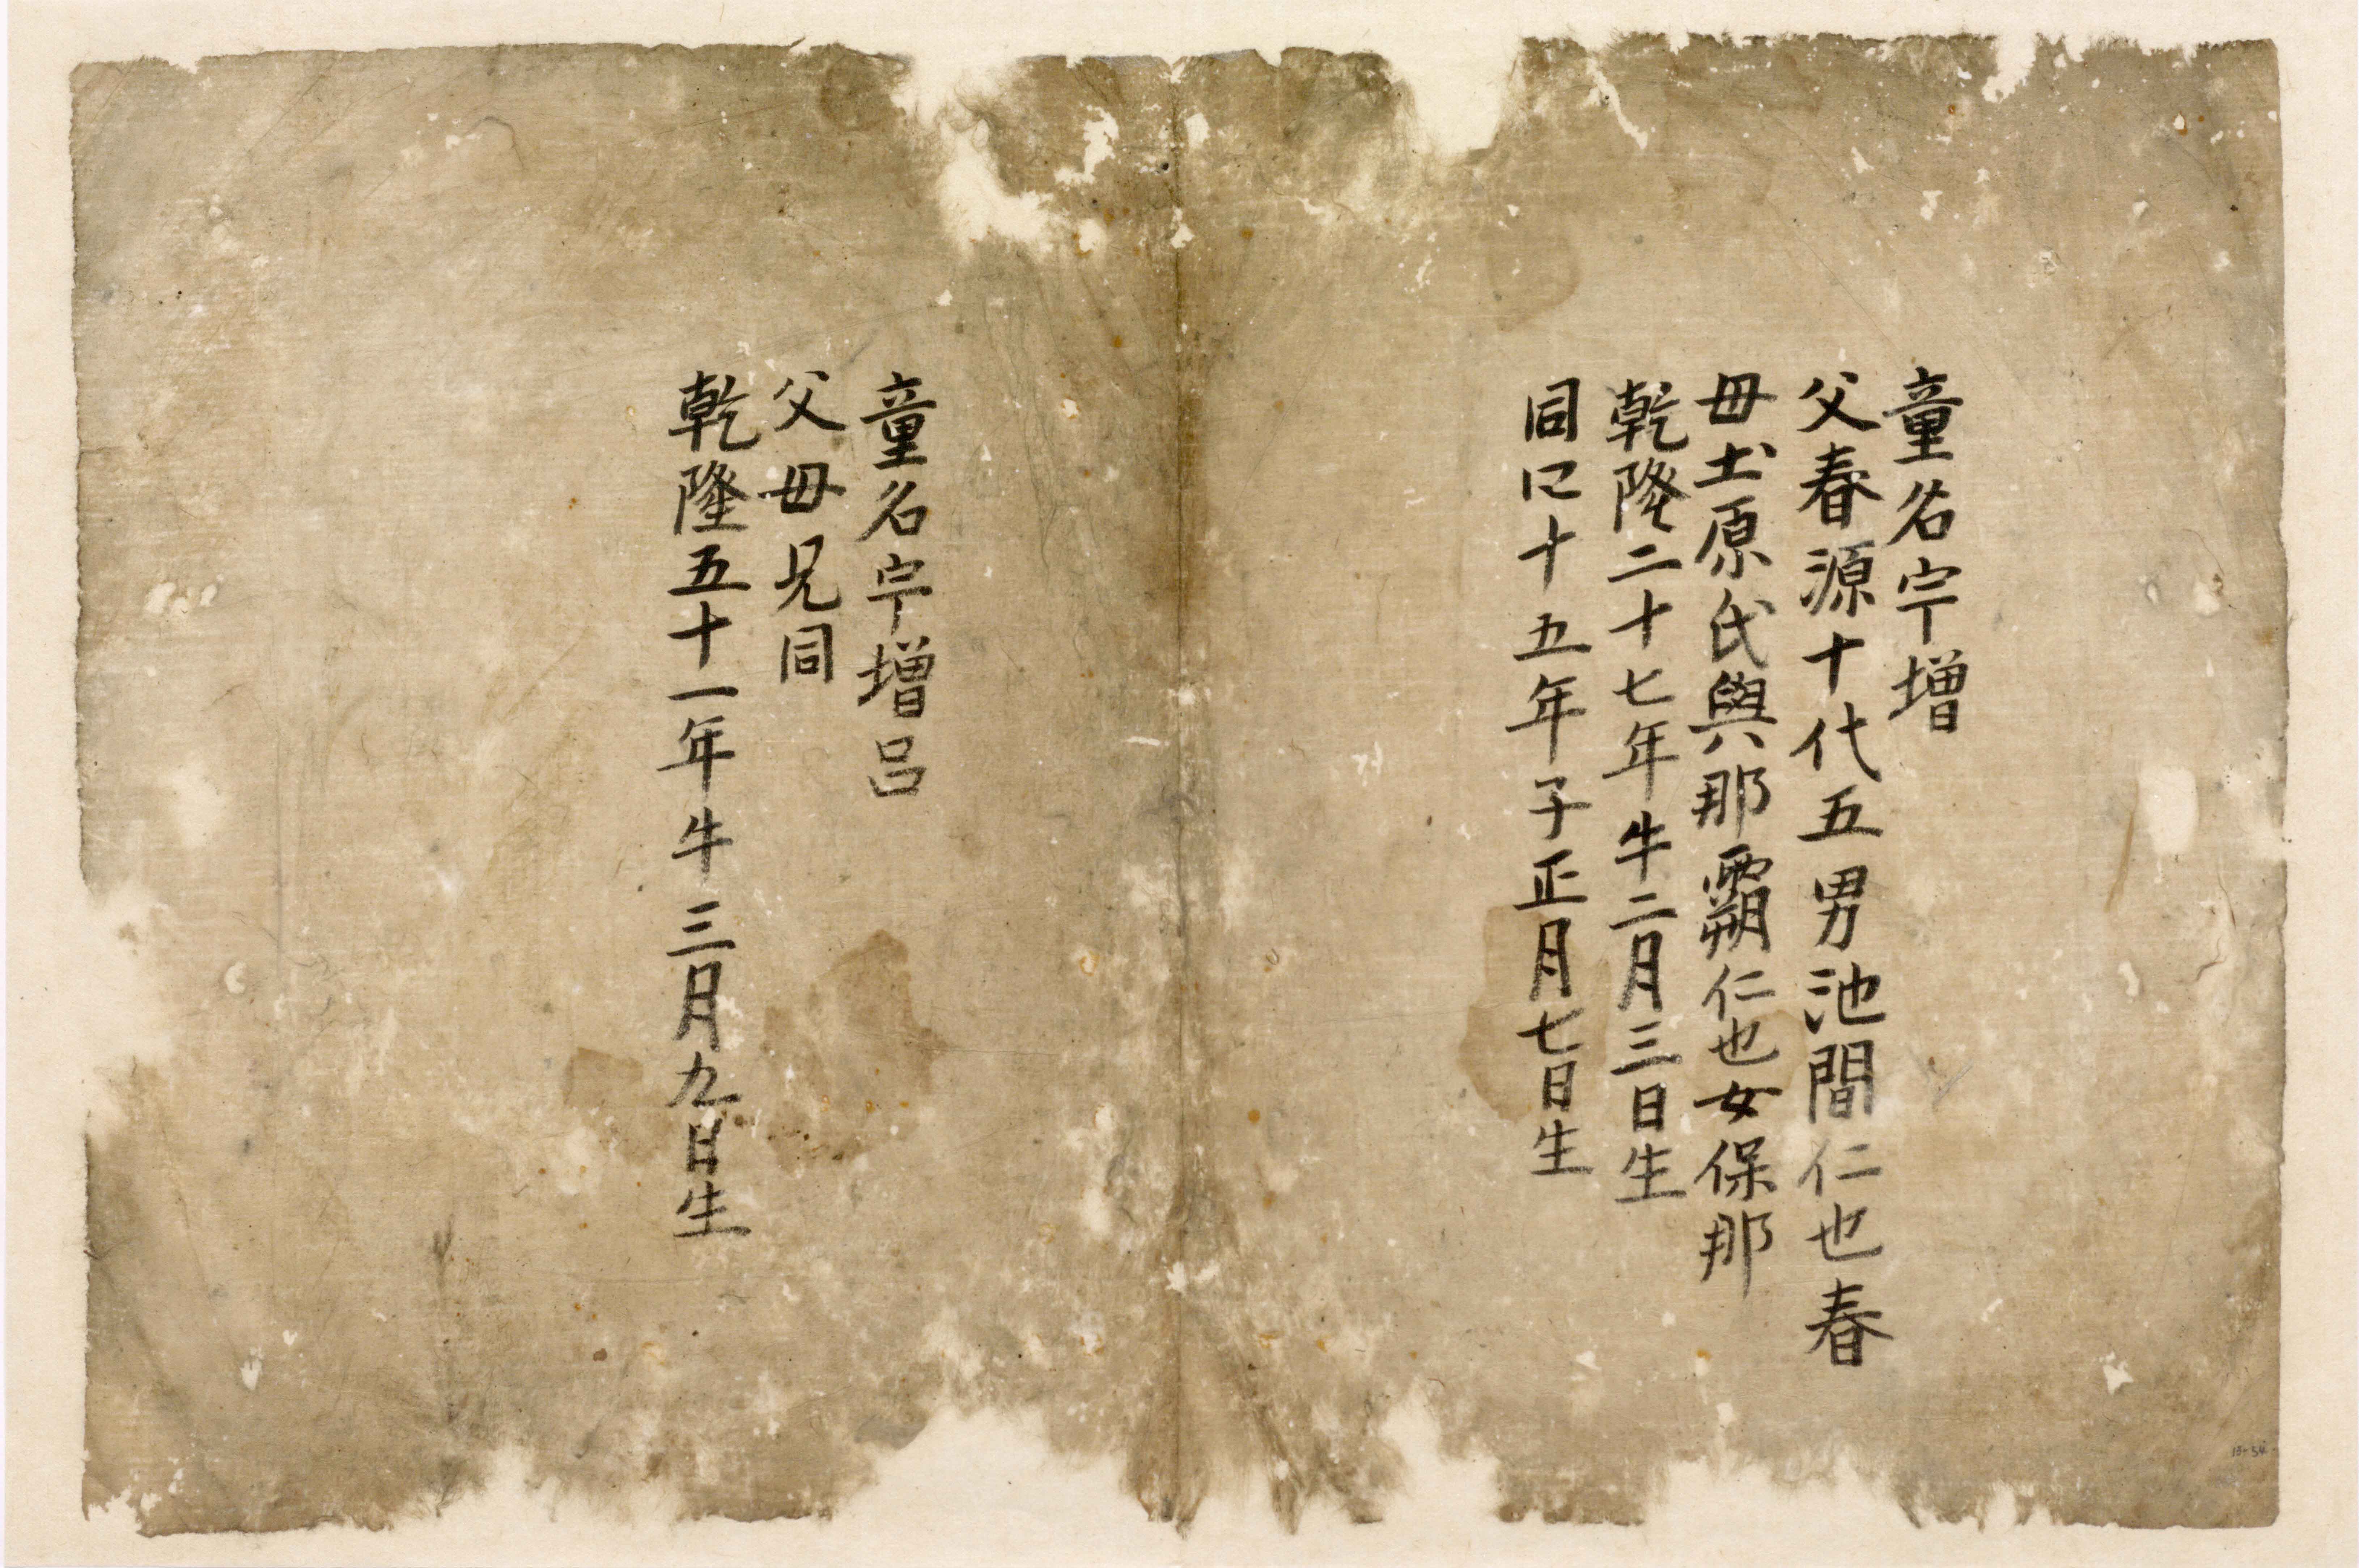 童名宇増
父春源十代五男池間仁也春
毋土原氏與那覇仁也女保那
乾隆二十七年牛二月三日生
同口十五年子正月七日生
童名宇増呂
父毋兄同
乾隆五十一年牛三月九日生
13-54